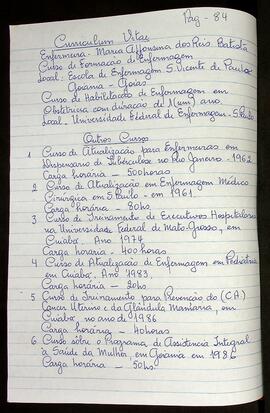 Pag - 84
Curriculum Vitae
Enfermeira - Maria Affonsina dos Reis Batista
Curso de Formação de Enfermagem
Local - Escola de Enfermagem S. Vicente de Paula
Goiana - Goiás
Curso de Habilitação de Enfermagem em
Obstetricia com duração de 1 (um) ano
Local - Universidade Federal de Enfermagem - S. Paulo
Outros Cursos
1 Curso de Atualização para Enfermeiras em
Dispensario de Tubérculose no Rio Janeiro - 1962
Carga horária - 500 horas
2 Curso de Atualização em Enfermagem Médico
Cirurgica em S. Paulo - em 1961
Carga horária - 80hs
3 Curso de Treinamento de Executivos Hospitalares
na Universidade Federal de Mato-Grosso, em
Cuiabá. Ano 1974
Carga horária - 400 horas
4 Curso de Atualização de Enfermagem em Pediatria
em Cuiabá. Ano 1983,
Carga horária - 20hs
5 Curso de Treinamento para Prevenção do (C.A.)
Câncer Uterino e da Glândula Mamária, em
Cuiabá, no ano de 1986
Carga horária - 40 horas
6 Curso sobre o Programa de Assistência Integral
à Saúde da Mulher, em Goiania em 1986
Carga horária - 50hs